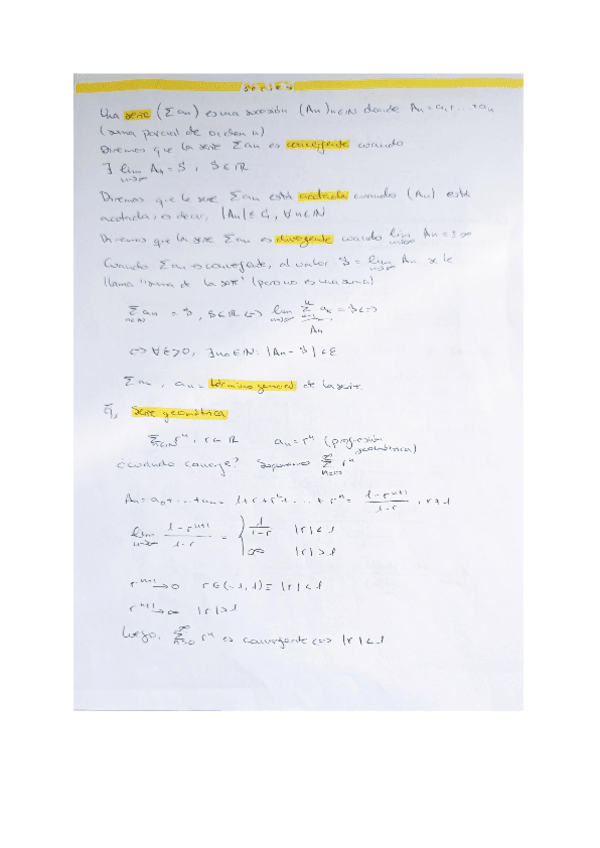 SERIES
Una serie (Σan) es una sucesión (An)n∈ℕ donde An = a1+...+an
(suma parcial de orden n)
Diremos que la serie Σan es convergente cuando
∃ lim n→∞ An = S, S∈ℝ
Diremos que la serie Σan está acotada cuando (An) está
acotada, es decir, |An| ≤ G, ∀n∈ℕ
Diremos que la serie Σan es divergente cuando lim n→∞ An = ±∞
Cuando Σan es convergente, al valor S = lim n→∞ An se le
llama "suma de la serie" (pero no es una suma)
Σ n∈ℕ an = S, S∈ℝ <=> lim n→∞ Σ ak = S <=>
An
<=> ∀ε>0, ∃n0∈ℕ: |An - S| < ε
Σan, an = término general de la serie.
Ej. Serie geométrica
Σ n∈ℕ r^n, r∈ℝ an = r^n (progresión
geométrica)
¿cuándo converge? Suponemos Σ n=0 ∞ r^n
An = a0+...+an = 1+r+r²+...+r^n = (1-r^(n+1))/(1-r), r≠1
lim n→∞ (1-r^(n+1))/(1-r) = { 1/(1-r) |r|<1
∞ |r|>1
r^(n+1) → 0 r∈(-1,1) = |r|<1
r^(n+1) → ∞ |r|>1
Luego, Σ n=0 ∞ r^n es convergente <=> |r|<1